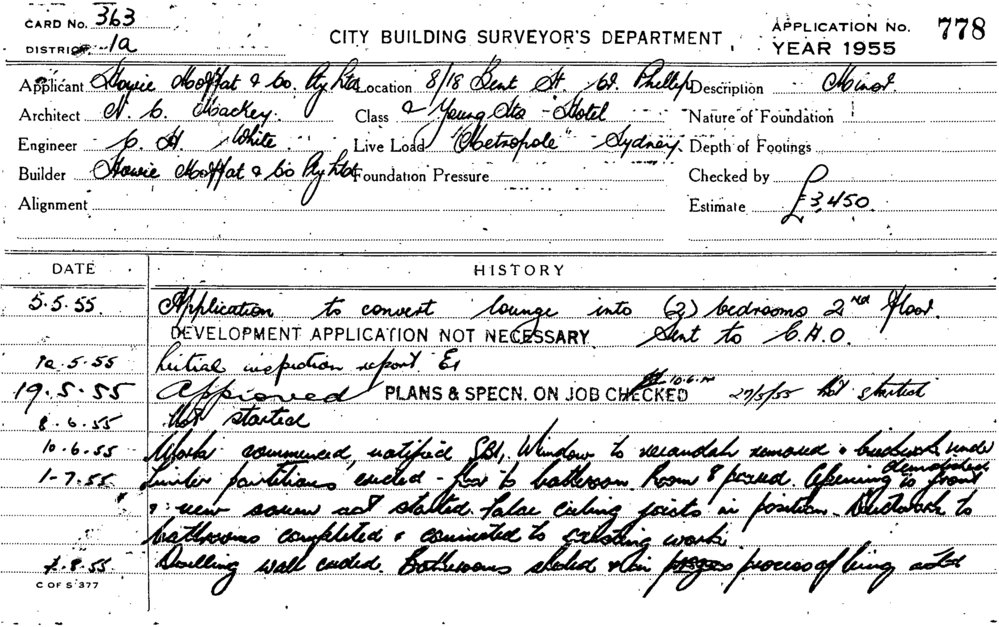 CARD No. 363
DISTRICT 1a
CITY BUILDING SURVEYOR'S DEPARTMENT
APPLICATION No. 778
YEAR 1955
Applicant Howie Moffat & Co. Pty Ltd Location 8/18 Bent St. Phillip Description Minor
Architect N. C. Mackey Class 2 Young Sts - Hotel Nature of Foundation
Engineer C. H. White Live Load "Metropole" - Sydney. Depth of Footings
Builder Howie Moffat & Co Pty Ltd Foundation Pressure Checked by
Alignment Estimate £3,450.
DATE HISTORY
5.5.55. Application to convert lounge into (2) bedrooms 2nd floor.
DEVELOPMENT APPLICATION NOT NECESSARY Sent to C.H.O.
12.5.55 Initial inspection report
19.5.55 Approved PLANS & SPECN. ON JOB CHECKED 10.6. 27/5/55 Not started
8.6.55 Not started
10.6.55 Work commenced, notified Window to verandah removed & brickwork under
demolished
1-7.55 partitions ended - floor to bathroom. Room 8 Opening to front
& new not started. False ceiling joists in position. Ductwork to
bathrooms completed & connected to existing work
.8.55 Dwelling wall ended. Bathrooms & in process of being
C OF S 377